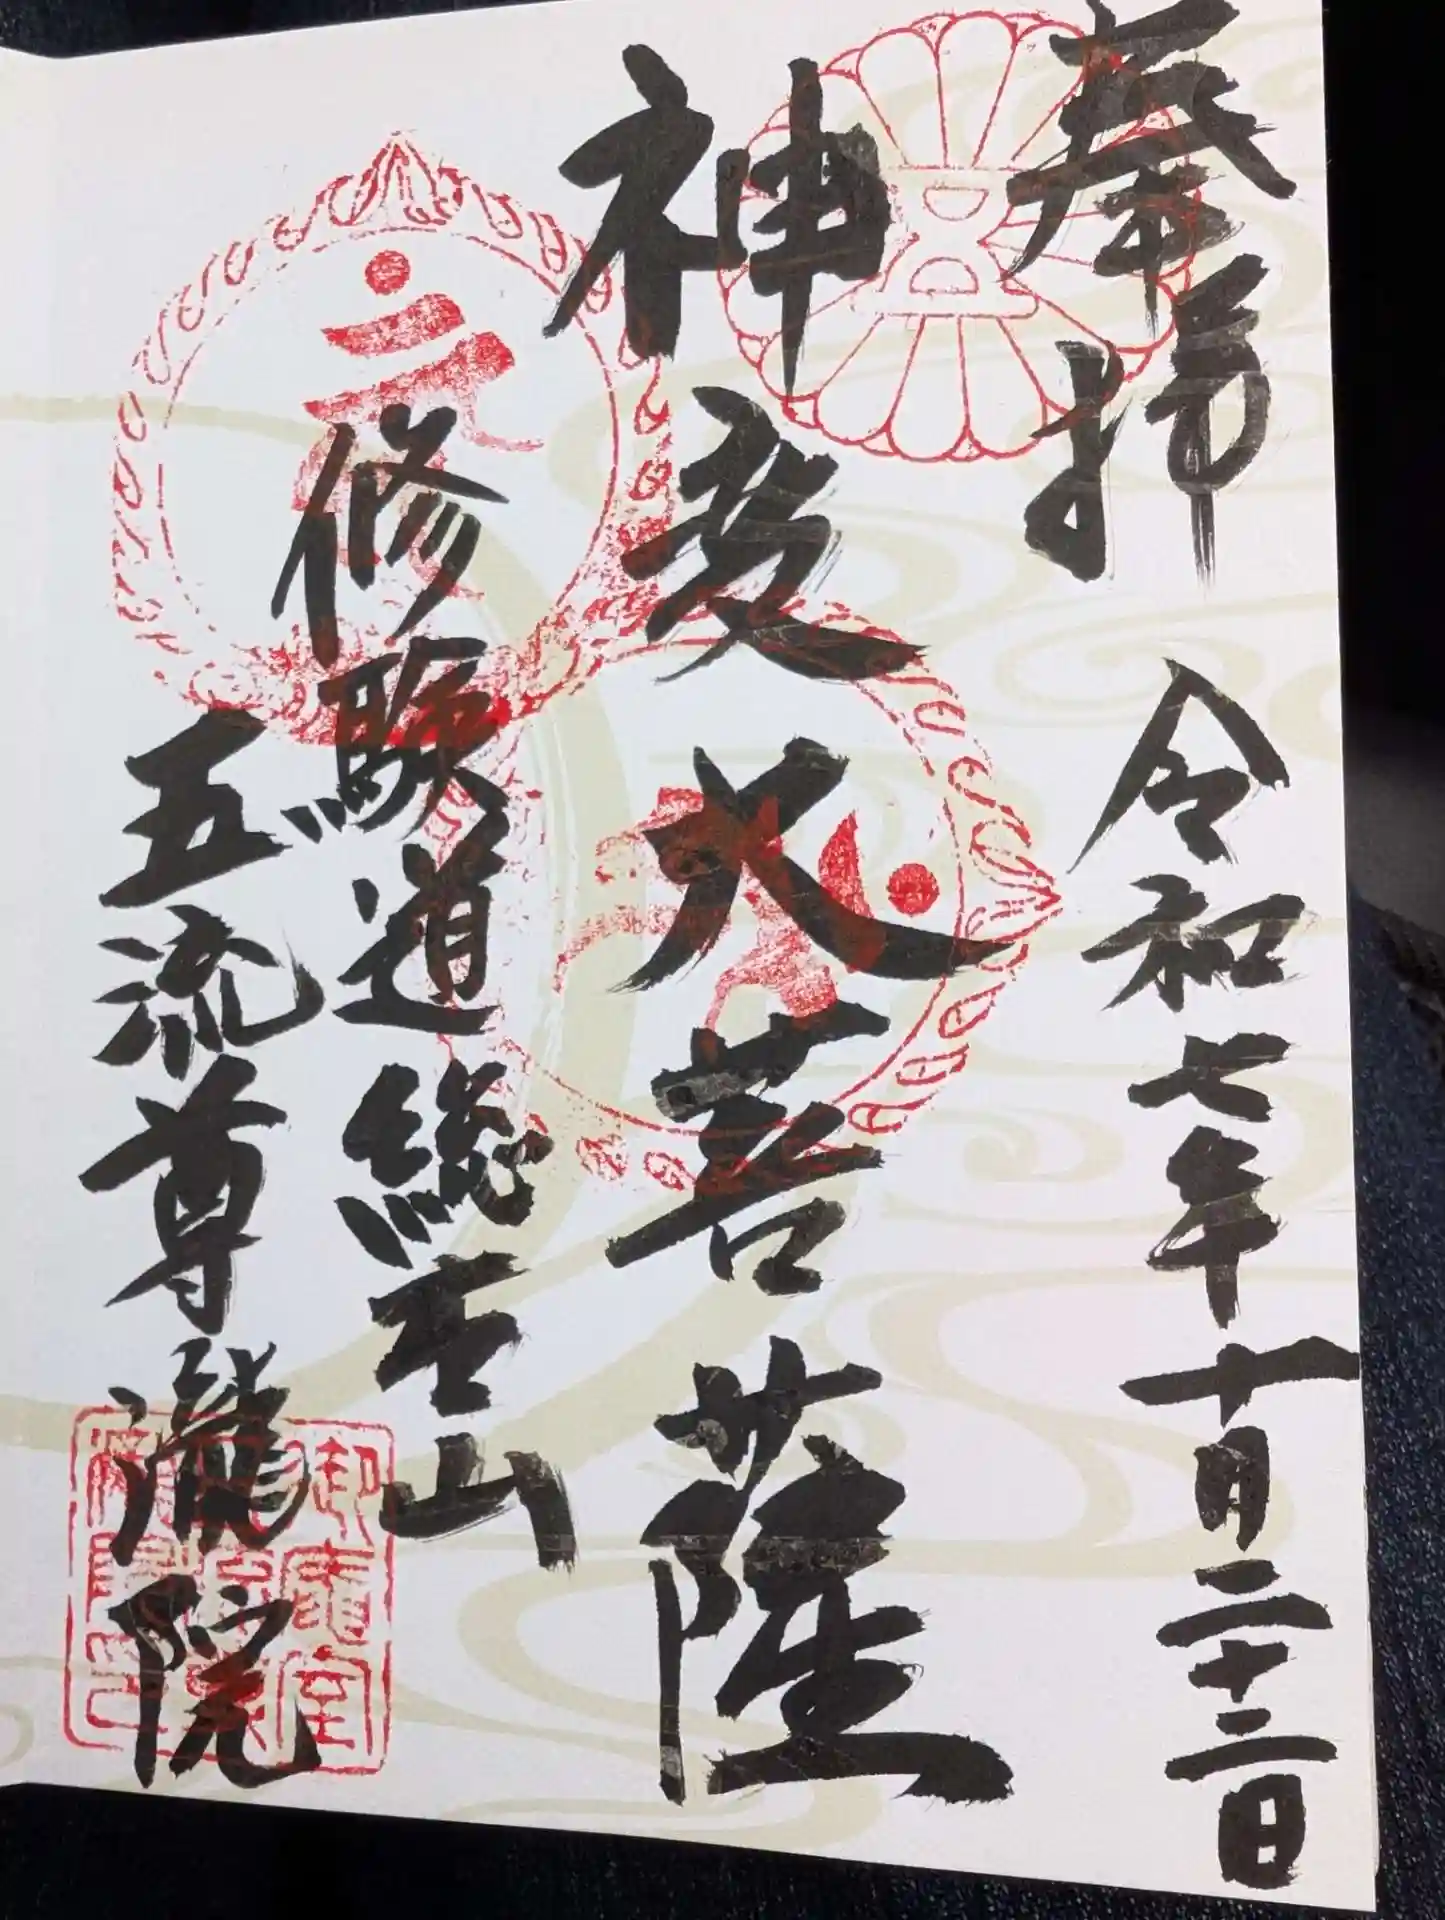 奉拝 令和七年十月二十二日
神変大菩薩
修験道総本山
五流尊瀧院